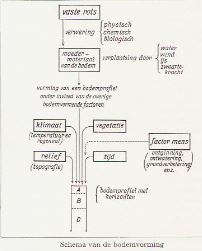 vaste rots
verwering
physisch
chemisch
biologisch
moeder-
materiaal
van de bodem
verplaatsing door
water
wind
ijs
zwaarte-
kracht
vorming van een bodemprofiel
onder invloed van de overige
bodemvormende factoren
klimaat
(temperatuur en
regenval)
vegetatie
factor mens
(ontginning,
ontwatering,
grondverbetering
enz.
reliëf
(topografie)
tijd
A
B
C
bodemprofiel met
horizonten
Schema van de bodenvorming